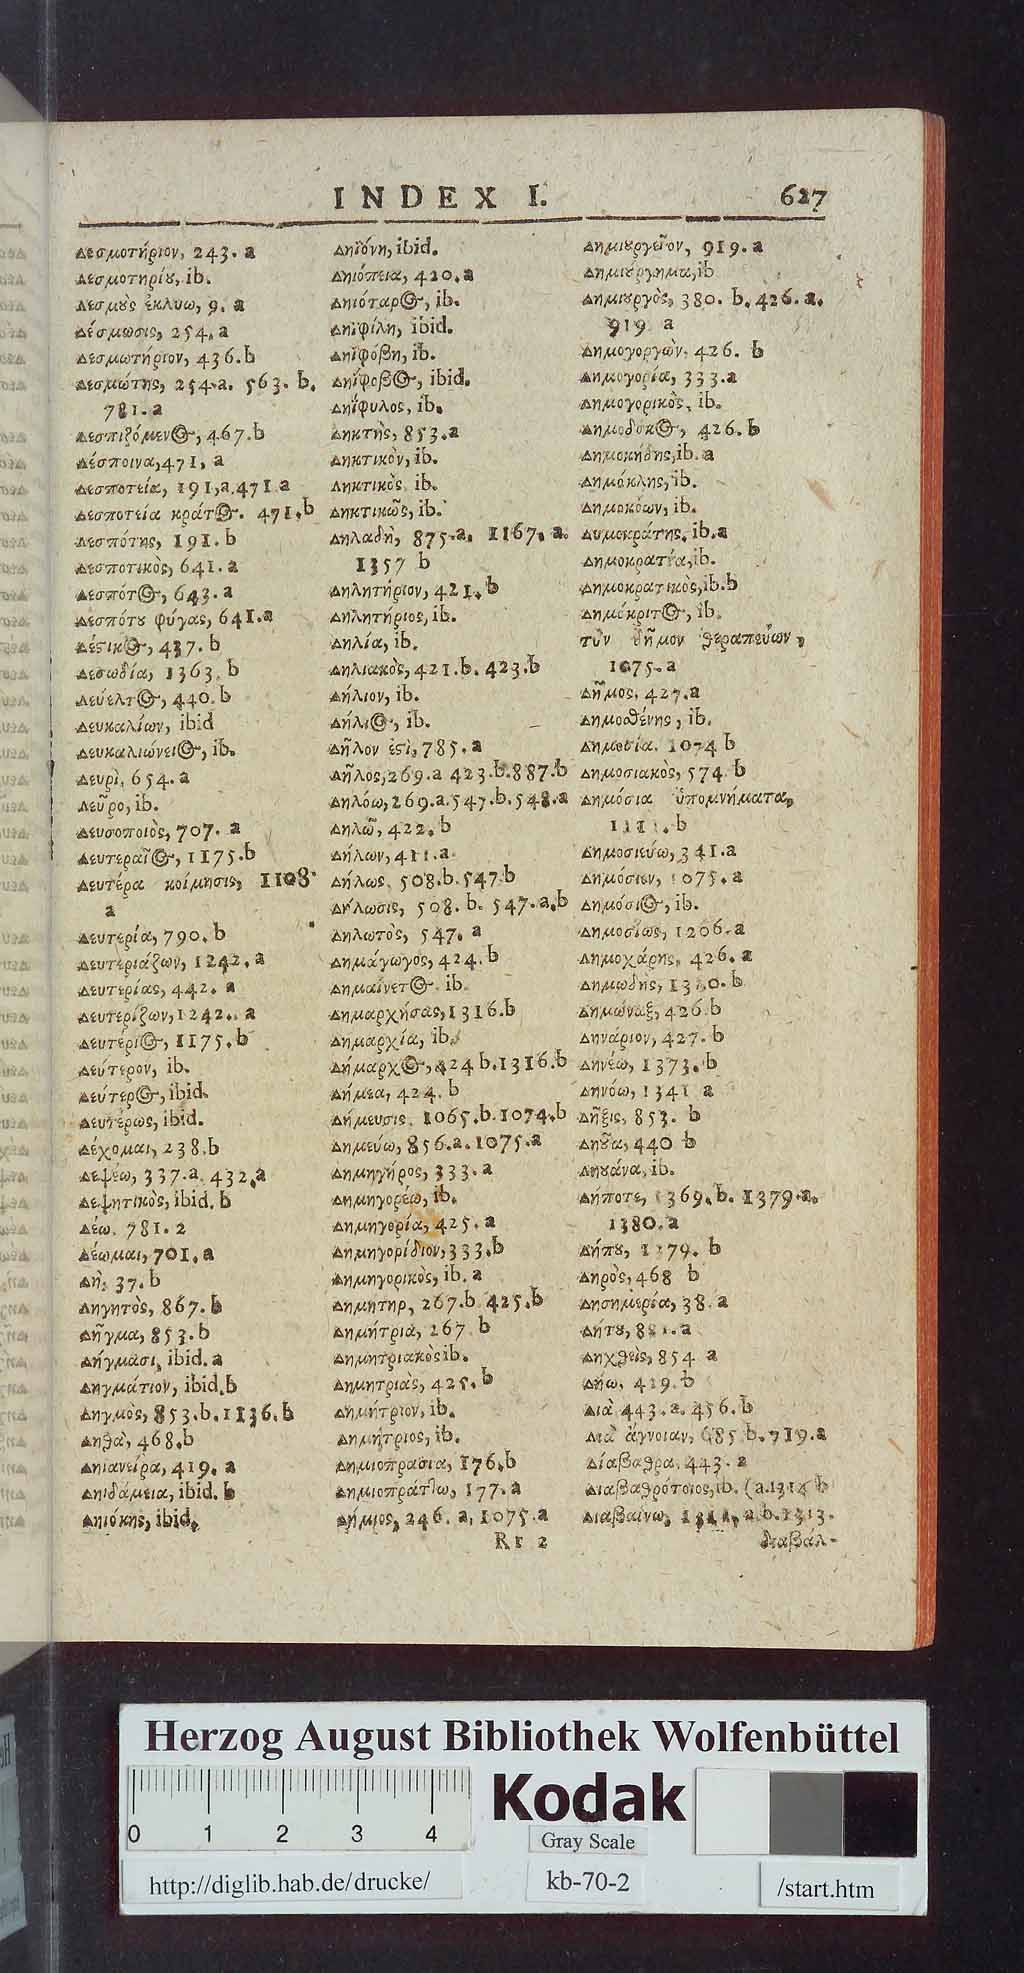 INDEX I. 627
Δεσμοτήριον, 243. a
Δεσμοτηρίȣ, ib.
Δεσμȣ̀ς ἐκλυω, 9. a
Δέσμωσις, 254, a
Δεσμωτήριον, 436. b
Δεσμώτης, 254. a. 563. b.
781. a
Δεσπιζόμενος, 467. b
Δέσποινα, 471, a
Δεσποτεία, 191, a. 471 a
Δεσποτεία κράτος. 471. b
Δεσπότης, 191. b
Δεσποτικὸς, 641. a
Δεσπότος, 643. a
Δεσπότȣ φύγας, 641. a
Δέτικος, 437. b
Δεσωδία, 1363. b
Δεύελτος, 440. b
Δευκαλίων, ibid
Δευκαλιώνειος, ib.
Δευρὶ, 654. a
Δεῦρο, ib.
Δευσοποιὸς, 707. a
Δευτεραῖος, 1175. b
Δευτέρα κοίμησις, 1108.
a
Δευτερία, 790. b
Δευτεριάζων, 1242. a
Δευτερίας, 442. a
Δευτερίζων, 1242. a
Δευτέριος, 1175. b
Δεύτερον, ib.
Δεύτερος, ibid.
Δευτέρως, ibid.
Δέχομαι, 238. b
Δεψέω, 337. a. 432. a
Δεψητικὸς, ibid. b
Δέω. 781. 2
Δέωμαι, 701. a
Δὴ, 37. b
Δηγητὸς, 867. b
Δῆγμα, 853. b
Δήγμασι, ibid. a
Δηγμάτιον, ibid. b
Δηγμὸς, 853. b. 1136. b
Δηθὰ, 468. b
Δηιανείρα, 419. a
Δηιδάμεια, ibid. b
Δηιόκης, ibid.
Δηϊόνη, ibid.
Δηιόπεια, 420. a
Δηιόταρος, ib.
Δηϊφίλη, ibid.
Δηϊφόβη, ib.
Δηΐφοβος, ibid.
Δηΐφυλος, ib.
Δηκτὴς, 853. a
Δηκτικὸν, ib.
Δηκτικὸς ib.
Δηκτικῶς, ib.
Δηλαδὴ, 875. a. 1167. a.
1357 b
Δηλητήριον, 421. b
Δηλητήριος, ib.
Δηλία, ib.
Δηλιακὸς, 421. b. 423. b
Δήλιον, ib.
Δήλιος, ib.
Δῆλον ἐστὶ, 785. a
Δῆλος, 269. a 423. b. 887. b
Δηλόω, 269. a. 547. b. 548. a
Δηλῶ, 422. b
Δήλων, 411. a
Δήλως, 508. b. 547. b
Δήλωσις, 508. b. 547. a. b
Δηλωτὸς, 547. a
Δημάγωγὸς, 424. b
Δημαίνετος. ib
Δημαρχήσας, 1316. b
Δημαρχία, ib.
Δήμαρχος, 424 b. 1316. b
Δήμεα, 424. b
Δήμευσις. 1065. b. 1074. b
Δημεύω, 856. a. 1075. a
Δημηγήρος, 333. a
Δημηγορέω, ib.
Δημηγορία, 425. a
Δημηγορίδιον, 333. b
Δημηγορικὸς, ib. a
Δημητηρ, 267. b. 425. b
Δημήτρια, 267. b
Δημητριακὸς ib.
Δημητριὰς, 425. b
Δημήτριον, ib.
Δημήτριος, ib.
Δημιοπρασια, 176. b
Δημιοπράτȣ, 177. a
Δήμιος, 246. a, 1075. a
Δημιȣργεῖον, 919. a
Δημιȣ́ργημα, ib
Δημιȣργὸς, 380. b. 426. a.
919 a
Δημογοργὼν. 426. b
Δημογορία, 333. a
Δημογορικὸς, ib.
Δημοδόκος, 426. b
Δημοκήδης, ib. a
Δημόκλης, ib.
Δημοκόων, ib.
Δυμοκράτης, ib. a
Δημοκρατέα, ib.
Δημοκρατικὸς, ib. b
Δημόκριτος, ib.
τὸν δῆμον θεραπεύων,
1075. a
Δῆμος, 427. a
Δημοσθένης, ib.
Δημοσία. 1074 b
Δημοσιακὸς, 574. b
Δημόσια ὑπομνήματα,
b
Δημοσιεύω, 341. a
Δημόσιον, 1075. a
Δημόσιος, ib.
Δημοσίως, 1206. a
Δημοχάρης, 426. a
Δημωδης, b
Δημώναξ, 426. b
Δηνάριον, 427. b
Δηνέω, 1373. b
Δηνόω, 1341 a
Δῆξις, 853. b
Δηȣ̃α, 440 b
Δηȣάνα, ib.
Δήποτε, 1369. b. 1379. a.
1380. a
Δήπȣ, 1379. b
Δηρὸς, 468 b
Δησημερέα, 38. a
Δήτȣ, 881. a
Δηχθεὶς, 854 a
Δήω. 419. b
Διὰ 443. a. 456. b
Διὰ ἄγνοιαν, 685. b. 719. a
Διαβαθρα, 443. a
Διαβαθρότοιος, ib. (a. 1314 b
Διαβαίνω, a. b. 1313.
Rr 2 διαβάλ-
Herzog August Bibliothek Wolfenbüttel
Kodak
0 1 2 3 4
Gray Scale
http://diglib.hab.de/drucke/ kb-70-2 /start.htm